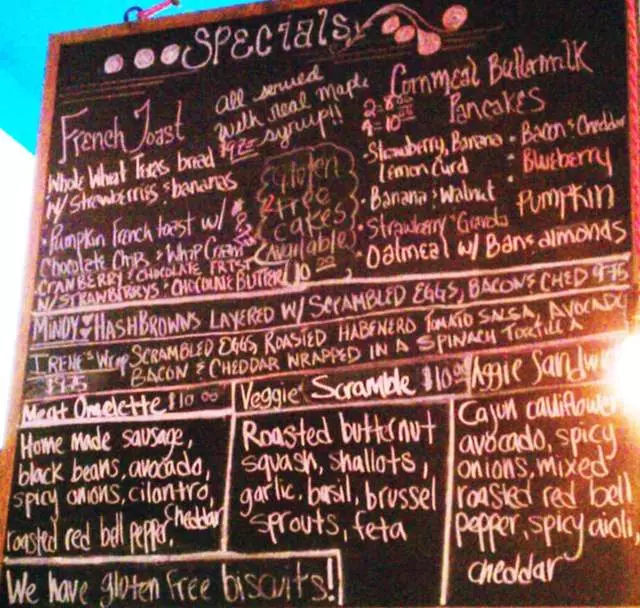 Specials
French Toast
All served
with real maple
syrup!!
Whole Wheat Texas bread
w/ Strawberries & bananas
• Pumpkin French toast w/
Chocolate Chips & Whip Cream
CRANBERRY & CHOCOLATE FRTST
w/ STRAWBERRYS & CHOCOLATE BUTTER 10.00
Gluten
free
cakes
Available
Cornmeal Buttermilk
Pancakes
• Strawberry, Banana
Lemon Curd
• Banana & Walnut
• Strawberry & Granola
• Oatmeal w/ Bans almonds
• Bacon & Cheddar
• Blueberry
Pumpkin
MINDY HASHBROWNS LAYERED W/ SCRAMBLED EGGS, BACON & CHED 9.75
IRENE'S Wrap SCRAMBLED EGGS ROASTED HABENERO TOMATO SALSA, AVOCADO
$9.75 BACON & CHEDDAR WRAPPED IN A SPINACH TORTILLA
Meat Omelette $10.00
Home made sausage,
black beans, avocado,
spicy onions, cilantro,
roasted red bell pepper, cheddar
Veggie Scramble $10.00
Roasted butternut
squash, shallots,
garlic, basil, brussel
sprouts, feta
Aggie Sandwi
Cajun cauliflower
avocado, spicy
onions, mixed
roasted red bell
pepper, spicy aioli,
cheddar
We have gluten free biscuits!